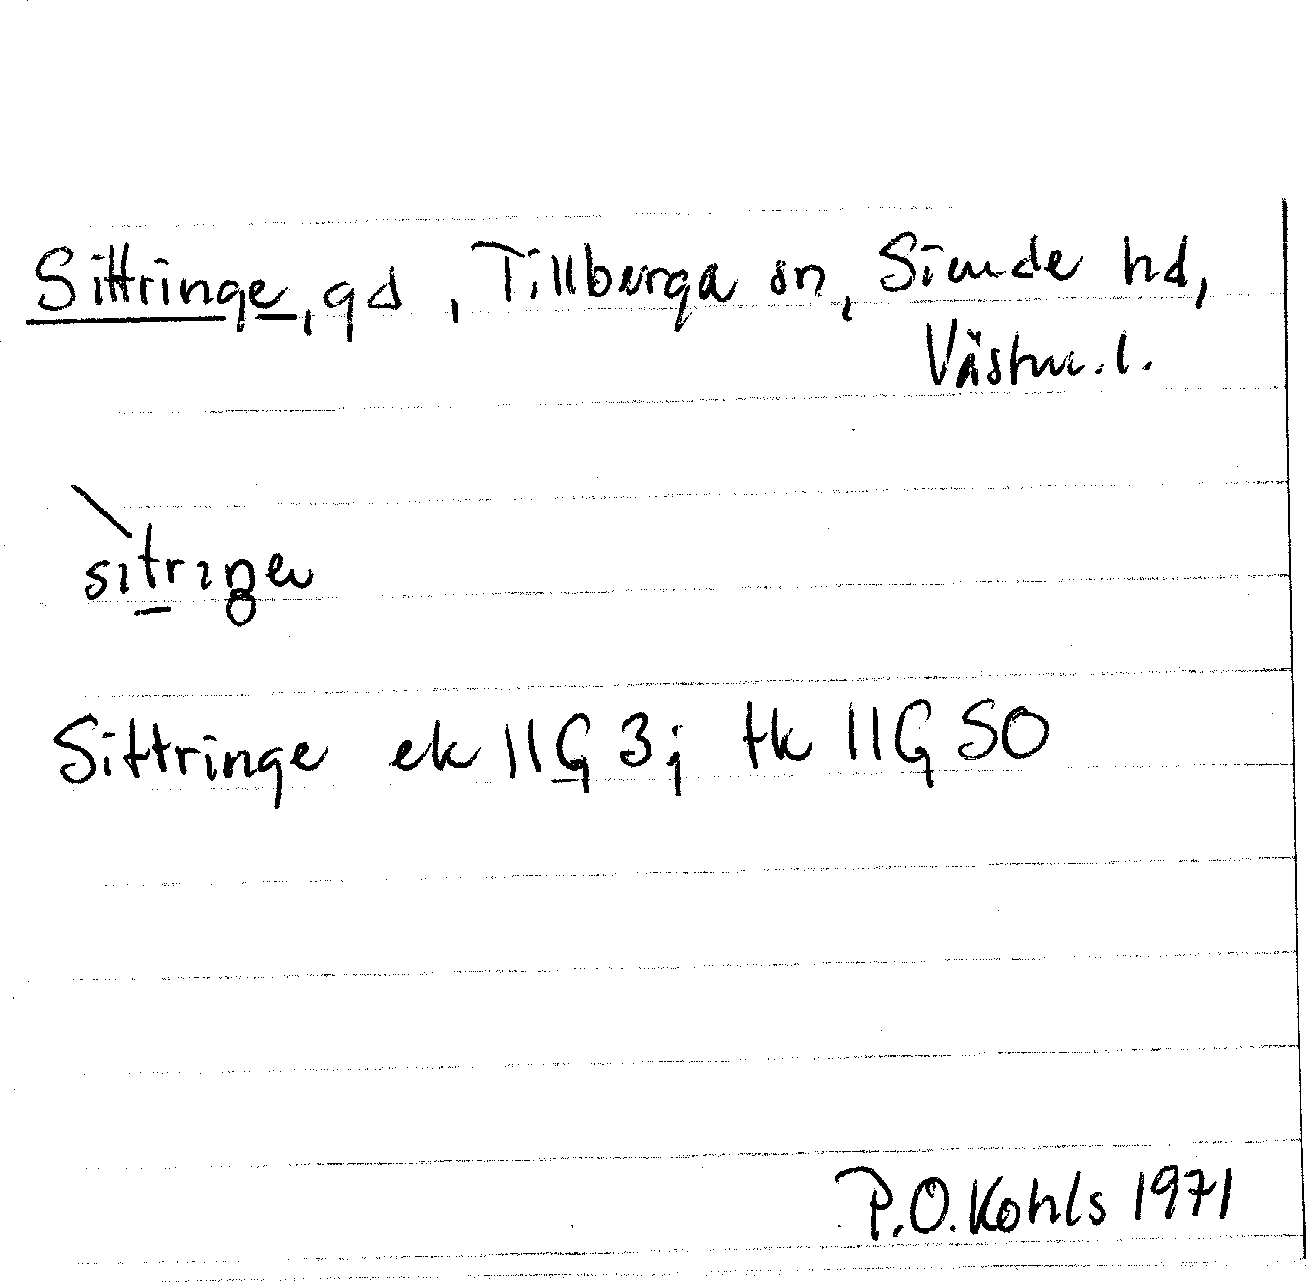 Sittringe, gd, Tillberga sn, Siende hd,
Västm. l.
Sittringe ek 11G 3; tk 11G SO
P.O. Kohls 1971